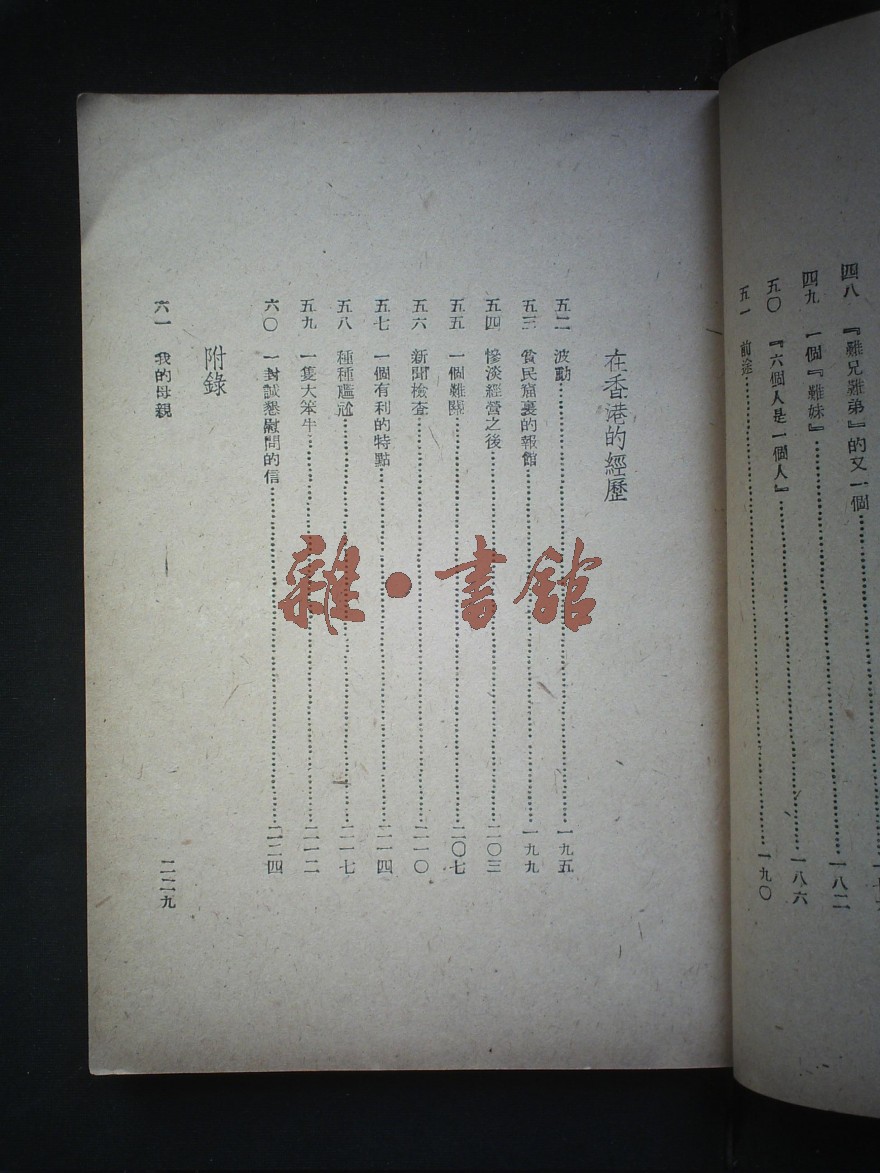 四八 『難兄難弟』的又一個
四九 一個『難妹』……一八二
五〇 『六個人是一個人』……一八六
五一 前途……一九〇
在香港的經歷
五二 波動……一九五
五三 貧民窟裏的報館……一九九
五四 慘淡經營之後……二〇三
五五 一個難關……二〇七
五六 新聞檢查……二一〇
五七 一個有利的特點……二一四
五八 種種尷尬……二一七
五九 一隻大笨牛……二一二
六〇 一封誠懇慰問的信……二二四
附錄
六一 我的母親 二二九
雜·書館